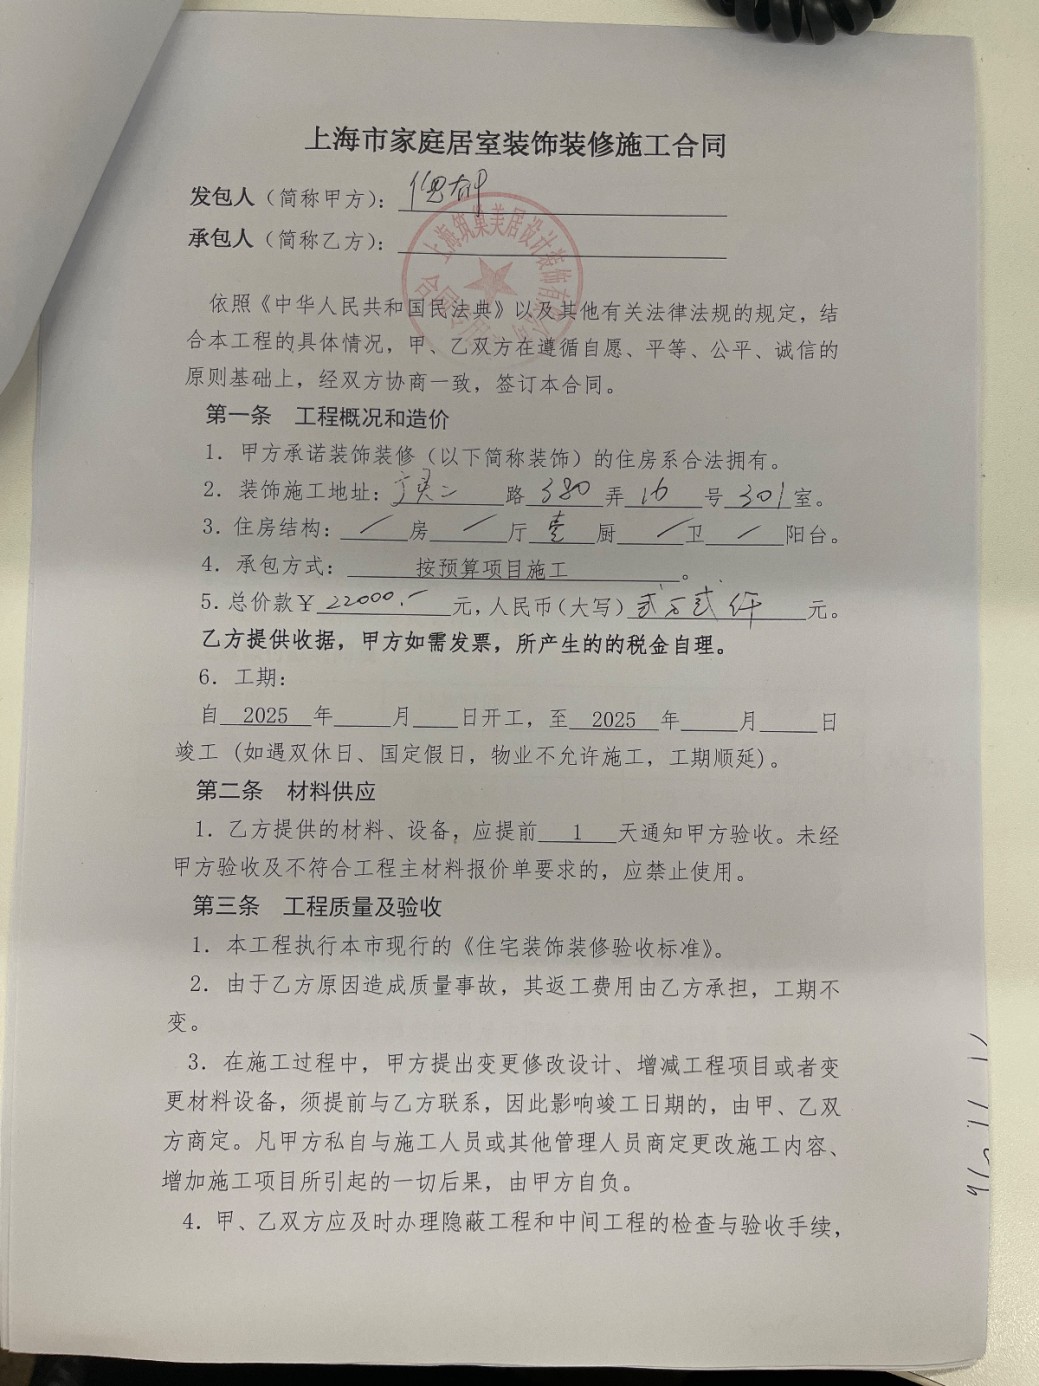 上海市家庭居室装饰装修施工合同
发包人（简称甲方）：
承包人（简称乙方）：
上海筑巢美居设计装饰有限公司
依照《中华人民共和国民法典》以及其他有关法律法规的规定，结
合本工程的具体情况，甲、乙双方在遵循自愿、平等、公平、诚信的
原则基础上，经双方协商一致，签订本合同。
第一条 工程概况和造价
1. 甲方承诺装饰装修（以下简称装饰）的住房系合法拥有。
2. 装饰施工地址： 路 380 弄 16 号 301 室。
3. 住房结构： / 房 / 厅 壹 厨 / 卫 / 阳台。
4. 承包方式： 按预算项目施工 。
5. 总价款￥ 22000.- 元，人民币（大写） 贰万贰仟 元。
乙方提供收据，甲方如需发票，所产生的的税金自理。
6. 工期：
自 2025 年 月 日开工，至 2025 年 月 日
竣工（如遇双休日、国定假日，物业不允许施工，工期顺延）。
第二条 材料供应
1. 乙方提供的材料、设备，应提前 1 天通知甲方验收。未经
甲方验收及不符合工程主材料报价单要求的，应禁止使用。
第三条 工程质量及验收
1. 本工程执行本市现行的《住宅装饰装修验收标准》。
2. 由于乙方原因造成质量事故，其返工费用由乙方承担，工期不
变。
3. 在施工过程中，甲方提出变更修改设计、增减工程项目或者变
更材料设备，须提前与乙方联系，因此影响竣工日期的，由甲、乙双
方商定。凡甲方私自与施工人员或其他管理人员商定更改施工内容、
增加施工项目所引起的一切后果，由甲方自负。
4. 甲、乙双方应及时办理隐蔽工程和中间工程的检查与验收手续，